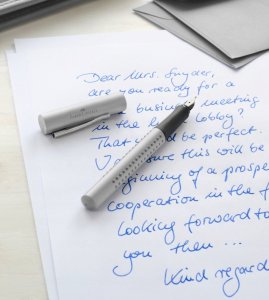 Dear Mrs. Snyder,
are you ready for a
business meeting
in the lobby?
That would be perfect.
I'm sure this will be
beginning of a prospe
cooperation in the f
looking forward to
you then ...
Kind regard